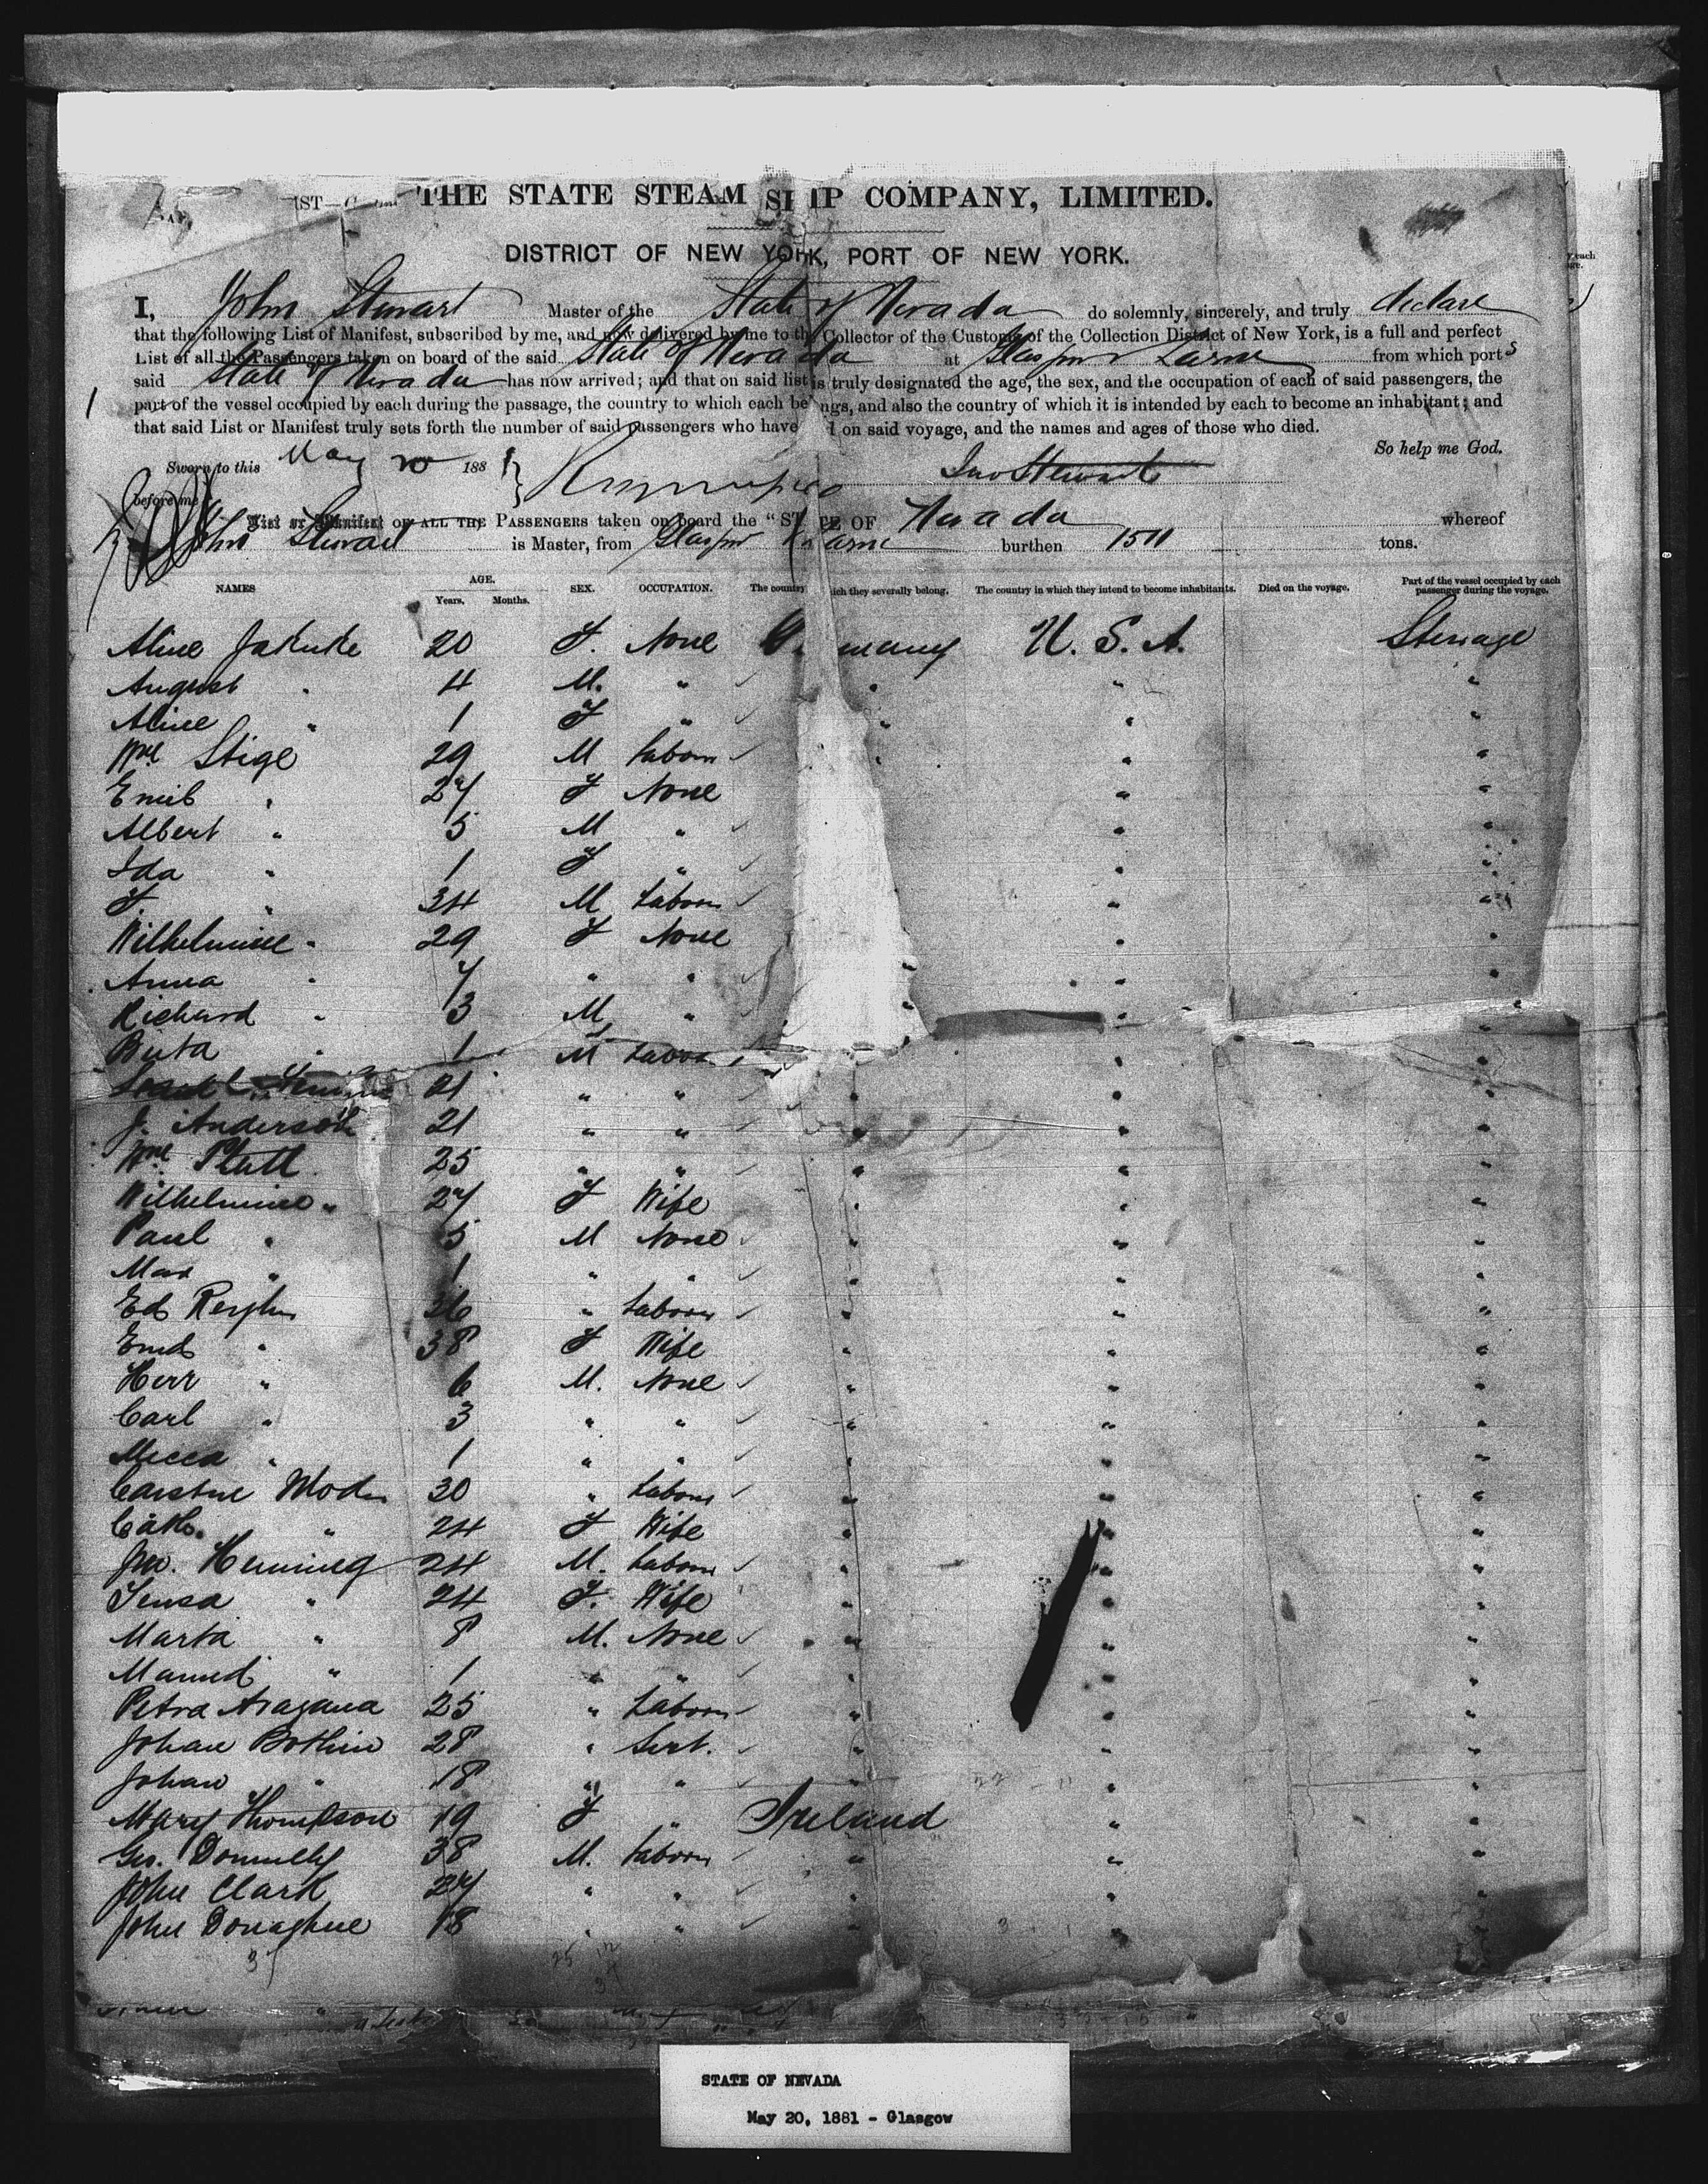 THE STATE STEAM SHIP COMPANY, LIMITED.
DISTRICT OF NEW YORK, PORT OF NEW YORK.
I, John Stewart Master of the State of Nevada do solemnly, sincerely, and truly declare
that the following List of Manifest, subscribed by me, and now delivered by me to the Collector of the Customs of the Collection District of New York, is a full and perfect
List of all the Passengers taken on board of the said State of Nevada at Glasgow Larne from which ports
said State of Nevada has now arrived; and that on said list is truly designated the age, the sex, and the occupation of each of said passengers, the
part of the vessel occupied by each during the passage, the country to which each be ngs, and also the country of which it is intended by each to become an inhabitant; and
that said List or Manifest truly sets forth the number of said passengers who have d on said voyage, and the names and ages of those who died.
So help me God.
Sworn to this May 20 1881
before me
Jno Stewart
List or Manifest OF ALL THE PASSENGERS taken on board the "STATE OF Nevada whereof
John Stewart is Master, from Glasgow Larne burthen 1511 tons.
NAMES AGE. Years. Months. SEX. OCCUPATION. The country which they severally belong. The country in which they intend to become inhabitants. Died on the voyage. Part of the vessel occupied by each passenger during the voyage.
Aline 20 F. None Germany U. S. A. Steerage
August " 4 M. " " " "
Aline " 1 F " " " "
Wm Stige 29 M Labour " " "
Emil " 27 F None " "
Albert " 5 M " " "
Ida " 1 F " " "
F. " 34 M Labour " "
Wilhelmine " 29 F None " "
Anna " 7 " " " "
Richard " 3 M " " " "
Berta " 1 M Labour " "
21 " " " "
J. Anderson 21 " " " " "
Wm Plath 25 " " " " "
Wilhelmine " 27 F Wife " " "
Paul " 5 M None " " "
Max " 1 " " " " "
Ed 26 " Labour " " "
" 38 F Wife " " "
Herr " 6 M. None " " "
Carl " 3 " " " " "
" 1 " " " " "
30 " Labour " " "
Cath. " 24 F Wife " " "
Jno. Henning 24 M. Labour " " "
" 24 F. Wife " " "
Marta " 8 M. None " " "
" 1 " " " " "
Petra 25 " Labour " " "
Johan Bothin 28 " Sert. " " "
Johan " 18 " " " " "
Mary Thompson 19 F " Ireland " "
Geo. Donnelly 38 M. Labour " " "
John Clark 27 " " " " "
John Donaghue 18 " " " " "
STATE OF NEVADA
May 20, 1881 - Glasgow